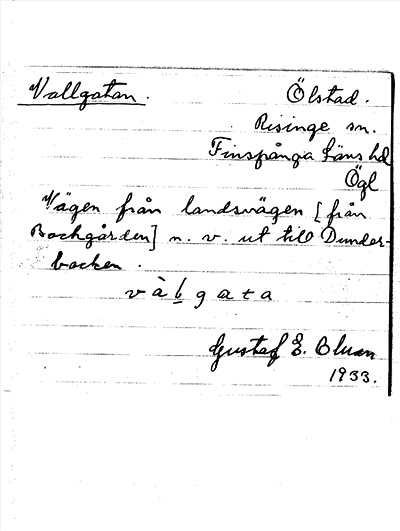 Vallgatan. Ölstad.
Risinge sn.
Finspånga läns hd
Ögl
Vägen från landsvägen [från
Bochgården] n. v. ut till Dunder-
backen.
vàlgata
Gustaf E. Bluan
1933.